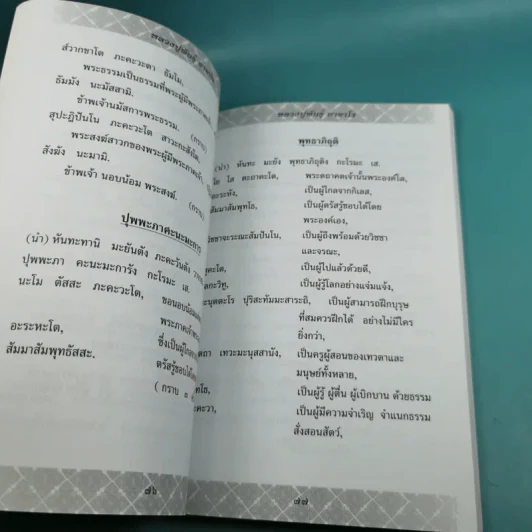 สวากขาโต ภะคะวะตา ธัมโม,
พระธรรมเป็นธรรมที่พระผู้มีพระภาค
ธัมมัง นะมัสสามิ.
ข้าพเจ้านมัสการพระธรรม. (กราบ)
สุปะฏิปันโน ภะคะวะโต สาวะกะสังโฆ,
พระสงฆ์สาวกของพระผู้มีพระภาคเจ้า
สังฆัง นะมามิ.
ข้าพเจ้า นอบน้อม พระสงฆ์. (กราบ)
ปุพพะภาคะนะมะการ
(นำ) หันทะทานิ มะยันตัง ภะคะวันตัง
ปุพพะภา คะนะมะการัง กะโรมะ เส.
นะโม ตัสสะ ภะคะวะโต, ขอนอบน้อม
พระภาคเจ้า
อะระหะโต, ซึ่งเป็นผู้ไกล
สัมมาสัมพุทธัสสะ. ตรัสรู้ชอบได้
(กราบ ๓
๗๖
พุทธาภิถุติ
(นำ) หันทะ มะยัง พุทธาภิถุติง กะโรมะ เส.
โย โส ตะถาคะโต, พระตถาคตเจ้านั้นพระองค์ใด,
อะระหัง, เป็นผู้ไกลจากกิเลส,
สัมมาสัมพุทโธ, เป็นผู้ตรัสรู้ชอบได้โดย
พระองค์เอง,
วิชชาจะระณะสัมปันโน, เป็นผู้ถึงพร้อมด้วยวิชชา
และจรณะ,
สุคะโต, เป็นผู้ไปแล้วด้วยดี,
โลกะวิทู, เป็นผู้รู้โลกอย่างแจ่มแจ้ง,
อะนุตตะโร ปุริสะทัมมะสาระถิ, เป็นผู้สามารถฝึกบุรุษ
ที่สมควรฝึกได้ อย่างไม่มีใคร
ยิ่งกว่า,
สัตถา เทวะมะนุสสานัง, เป็นครูผู้สอนของเทวดาและ
มนุษย์ทั้งหลาย,
พุทโธ, เป็นผู้รู้ ผู้ตื่น ผู้เบิกบาน ด้วยธรรม
ภะคะวา, เป็นผู้มีความจำเริญ จำแนกธรรม
สั่งสอนสัตว์,
๗๗